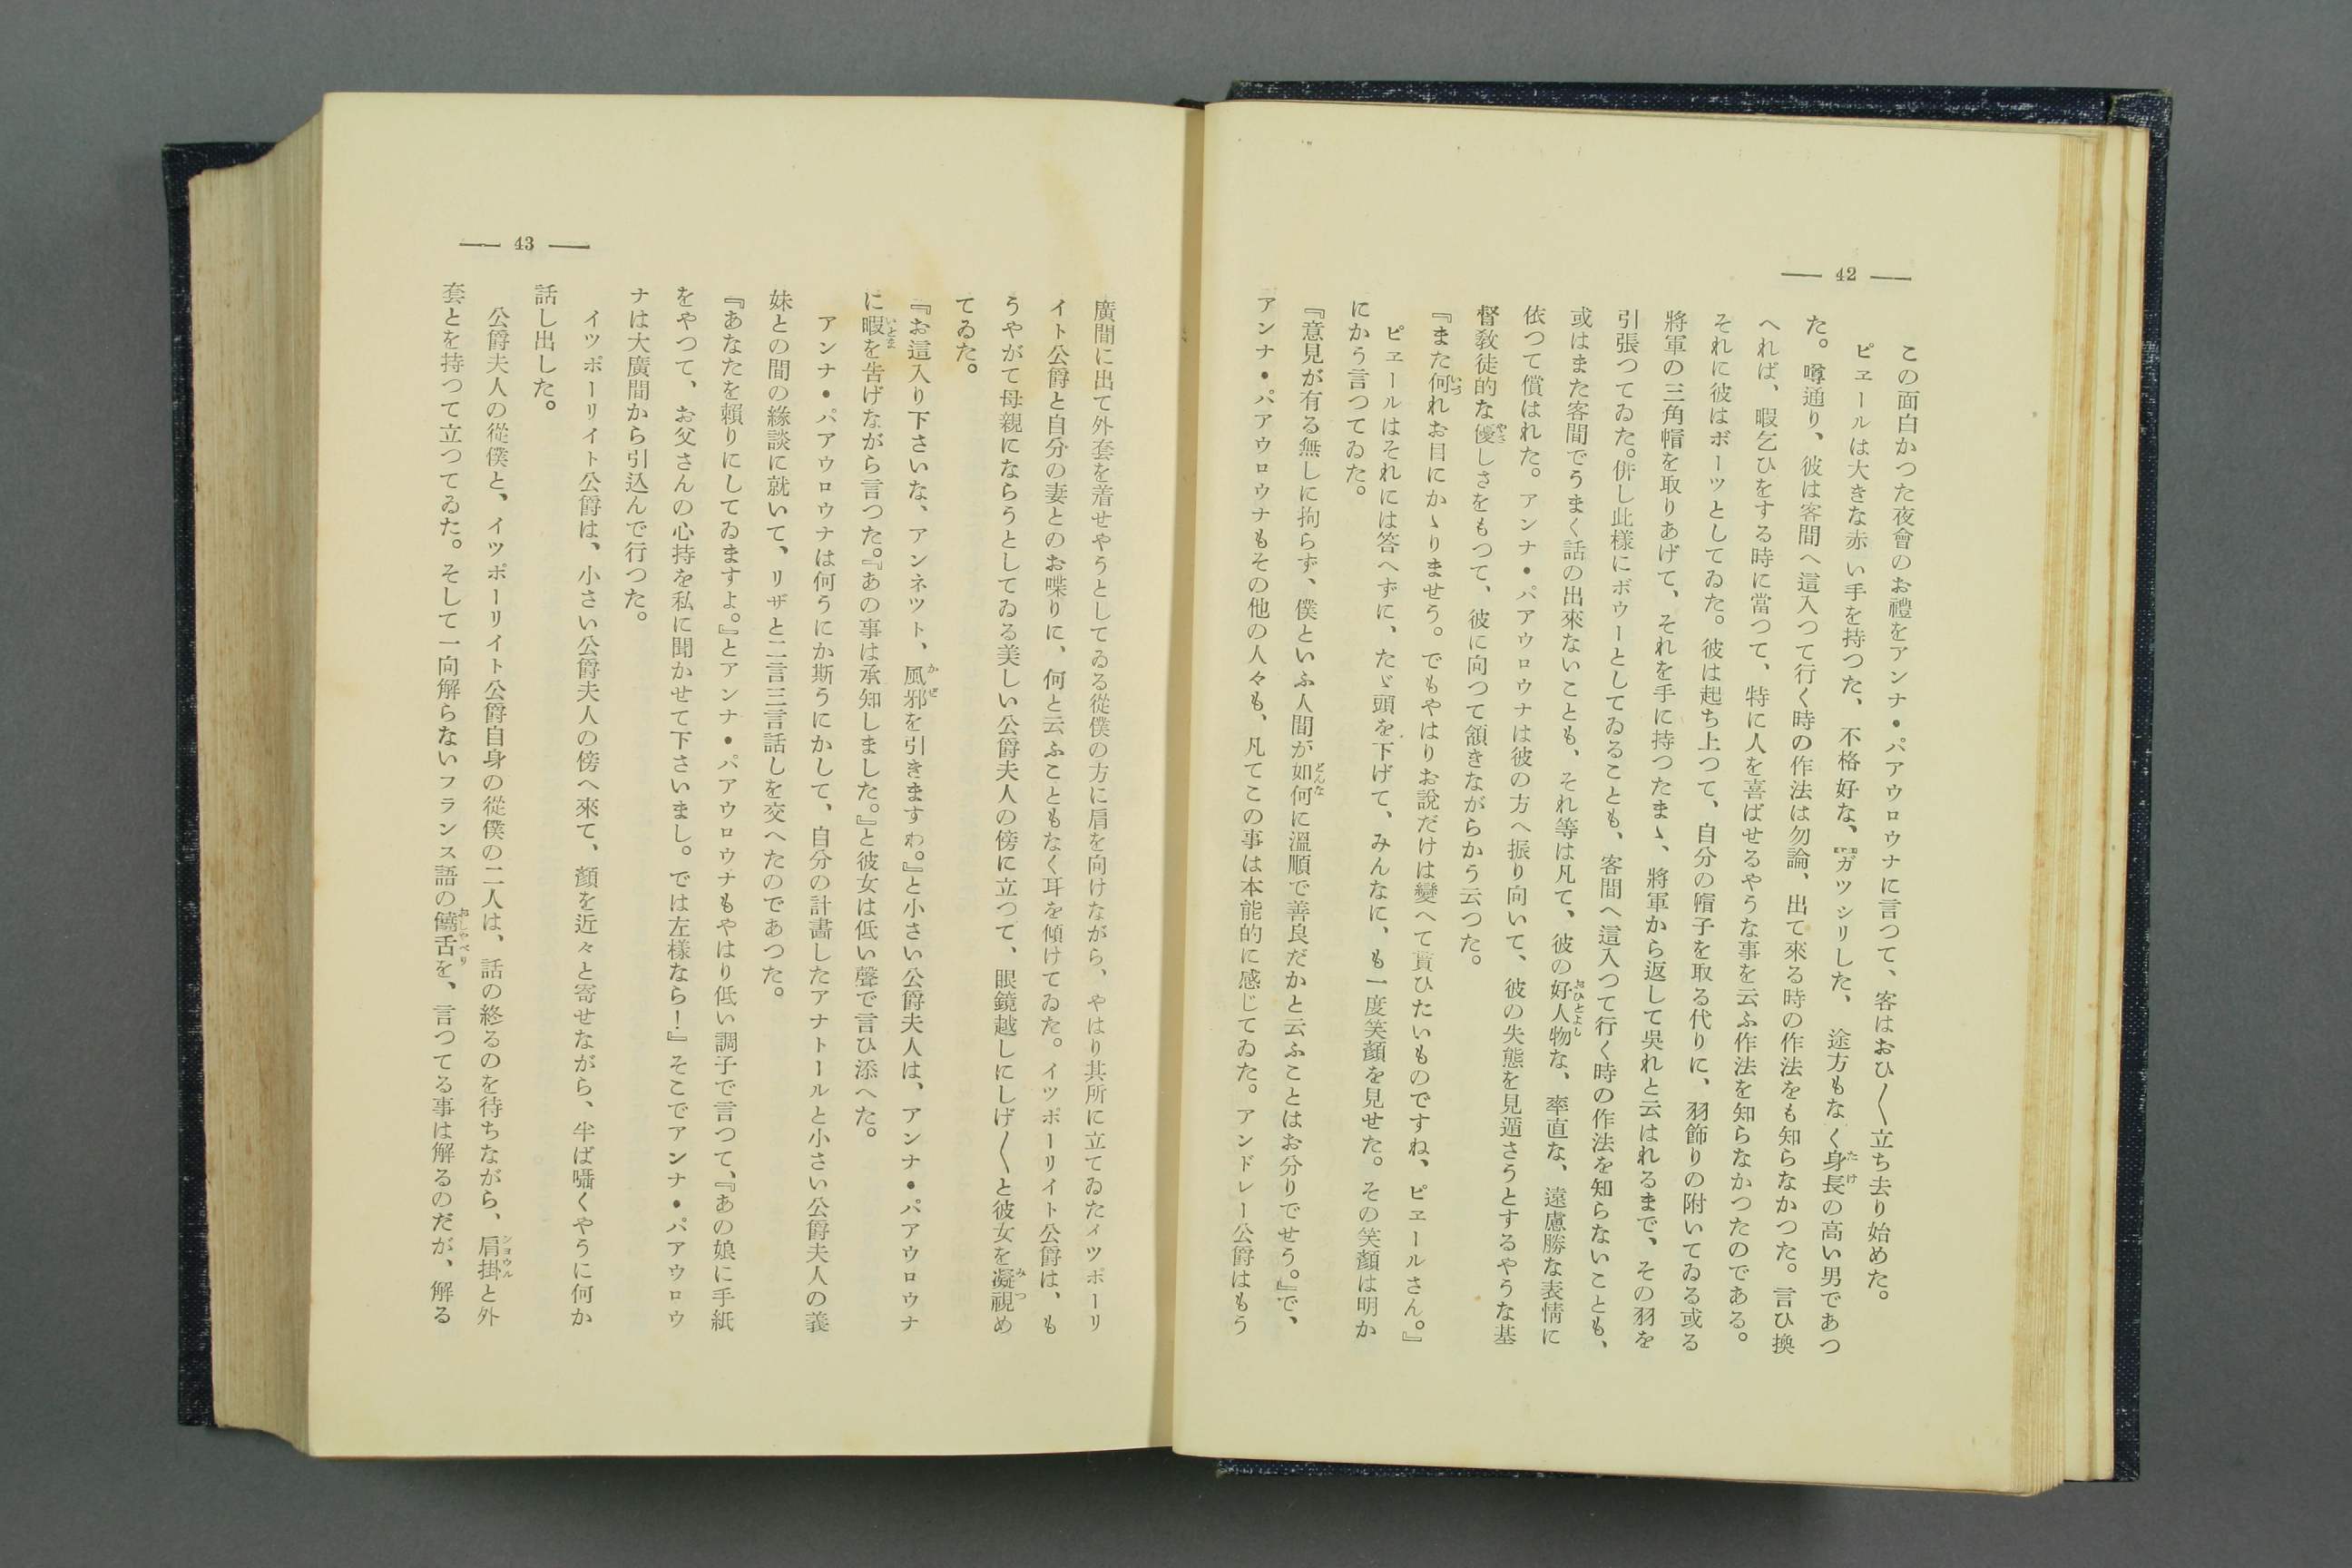 — 42 —
この面白かつた夜會のお禮をアンナ・パアウロウナに言つて、客はおひ〱立ち去り始めた。
ピエールは大きな赤い手を持つた、不格好な、ガツシリした、途方もなく身長の高い男であつ
た。噂通り、彼は客間へ這入つて行く時の作法は勿論、出て來る時の作法をも知らなかつた。言ひ換
へれば、暇乞ひをする時に當つて、特に人を喜ばせるやうな事を云ふ作法を知らなかつたのである。
それに彼はボーツとしてゐた。彼は起ち上つて、自分の帽子を取る代りに、羽飾りの附いてゐる或る
將軍の三角帽を取りあげて、それを手に持つたまゝ、將軍から返して吳れと云はれるまで、その羽を
引張つてゐた。併し此樣にボウーとしてゐることも、客間へ這入つて行く時の作法を知らないことも、
或はまた客間でうまく話の出來ないことも、それ等は凡て、彼の好人物な、率直な、遠慮勝な表情に
依つて償はれた。アンナ・パアウロウナは彼の方へ振り向いて、彼の失態を見遁さうとするやうな基
督敎徒的な優しさをもつて、彼に向つて頷きながらかう云つた。
『また何れお目にかゝりませう。でもやはりお說だけは變へて貰ひたいものですね、ピエールさん。』
ピエールはそれには答へずに、たゞ頭を下げて、みんなに、も一度笑顏を見せた。その笑顏は明か
にかう言つてゐた。
『意見が有る無しに拘らず、僕といふ人間が如何に溫順で善良だかと云ふことはお分りでせう。』で、
アンナ・パアウロウナもその他の人々も、凡てこの事は本能的に感じてゐた。アンドレー公爵はもう
— 43 —
廣間に出て外套を着せやうとしてゐる從僕の方に肩を向けながら、やはり其所に立てゐたイツポーリ
イト公爵と自分の妻とのお喋りに、何と云ふこともなく耳を傾けてゐた。イツポーリイト公爵は、も
うやがて母親にならうとしてゐる美しい公爵夫人の傍に立つて、眼鏡越しにしげ〱と彼女を凝視め
てゐた。
『お這入り下さいな、アンネツト、風邪を引きますわ。』と小さい公爵夫人は、アンナ・パアウロウナ
に暇を告げながら言つた。『あの事は承知しました。』と彼女は低い聲で言ひ添へた。
アンナ・パアウロウナは何うにか斯うにかして、自分の計畵したアナトールと小さい公爵夫人の義
妹との間の緣談に就いて、リザと二言三言話しを交へたのであつた。
『あなたを賴りにしてゐますよ。』とアンナ・パアウロウナもやはり低い調子で言つて、『あの娘に手紙
をやつて、お父さんの心持を私に聞かせて下さいまし。では左樣なら！』そこでアンナ・パアウロウ
ナは大廣間から引込んで行つた。
イツポーリイト公爵は、小さい公爵夫人の傍へ來て、顏を近々と寄せながら、半ば囁くやうに何か
話し出した。
公爵夫人の從僕と、イツポーリイト公爵自身の從僕の二人は、話の終るのを待ちながら、肩掛と外
套とを持つて立つてゐた。そして一向解らないフランス語の饒舌を、言つてる事は解るのだが、解る